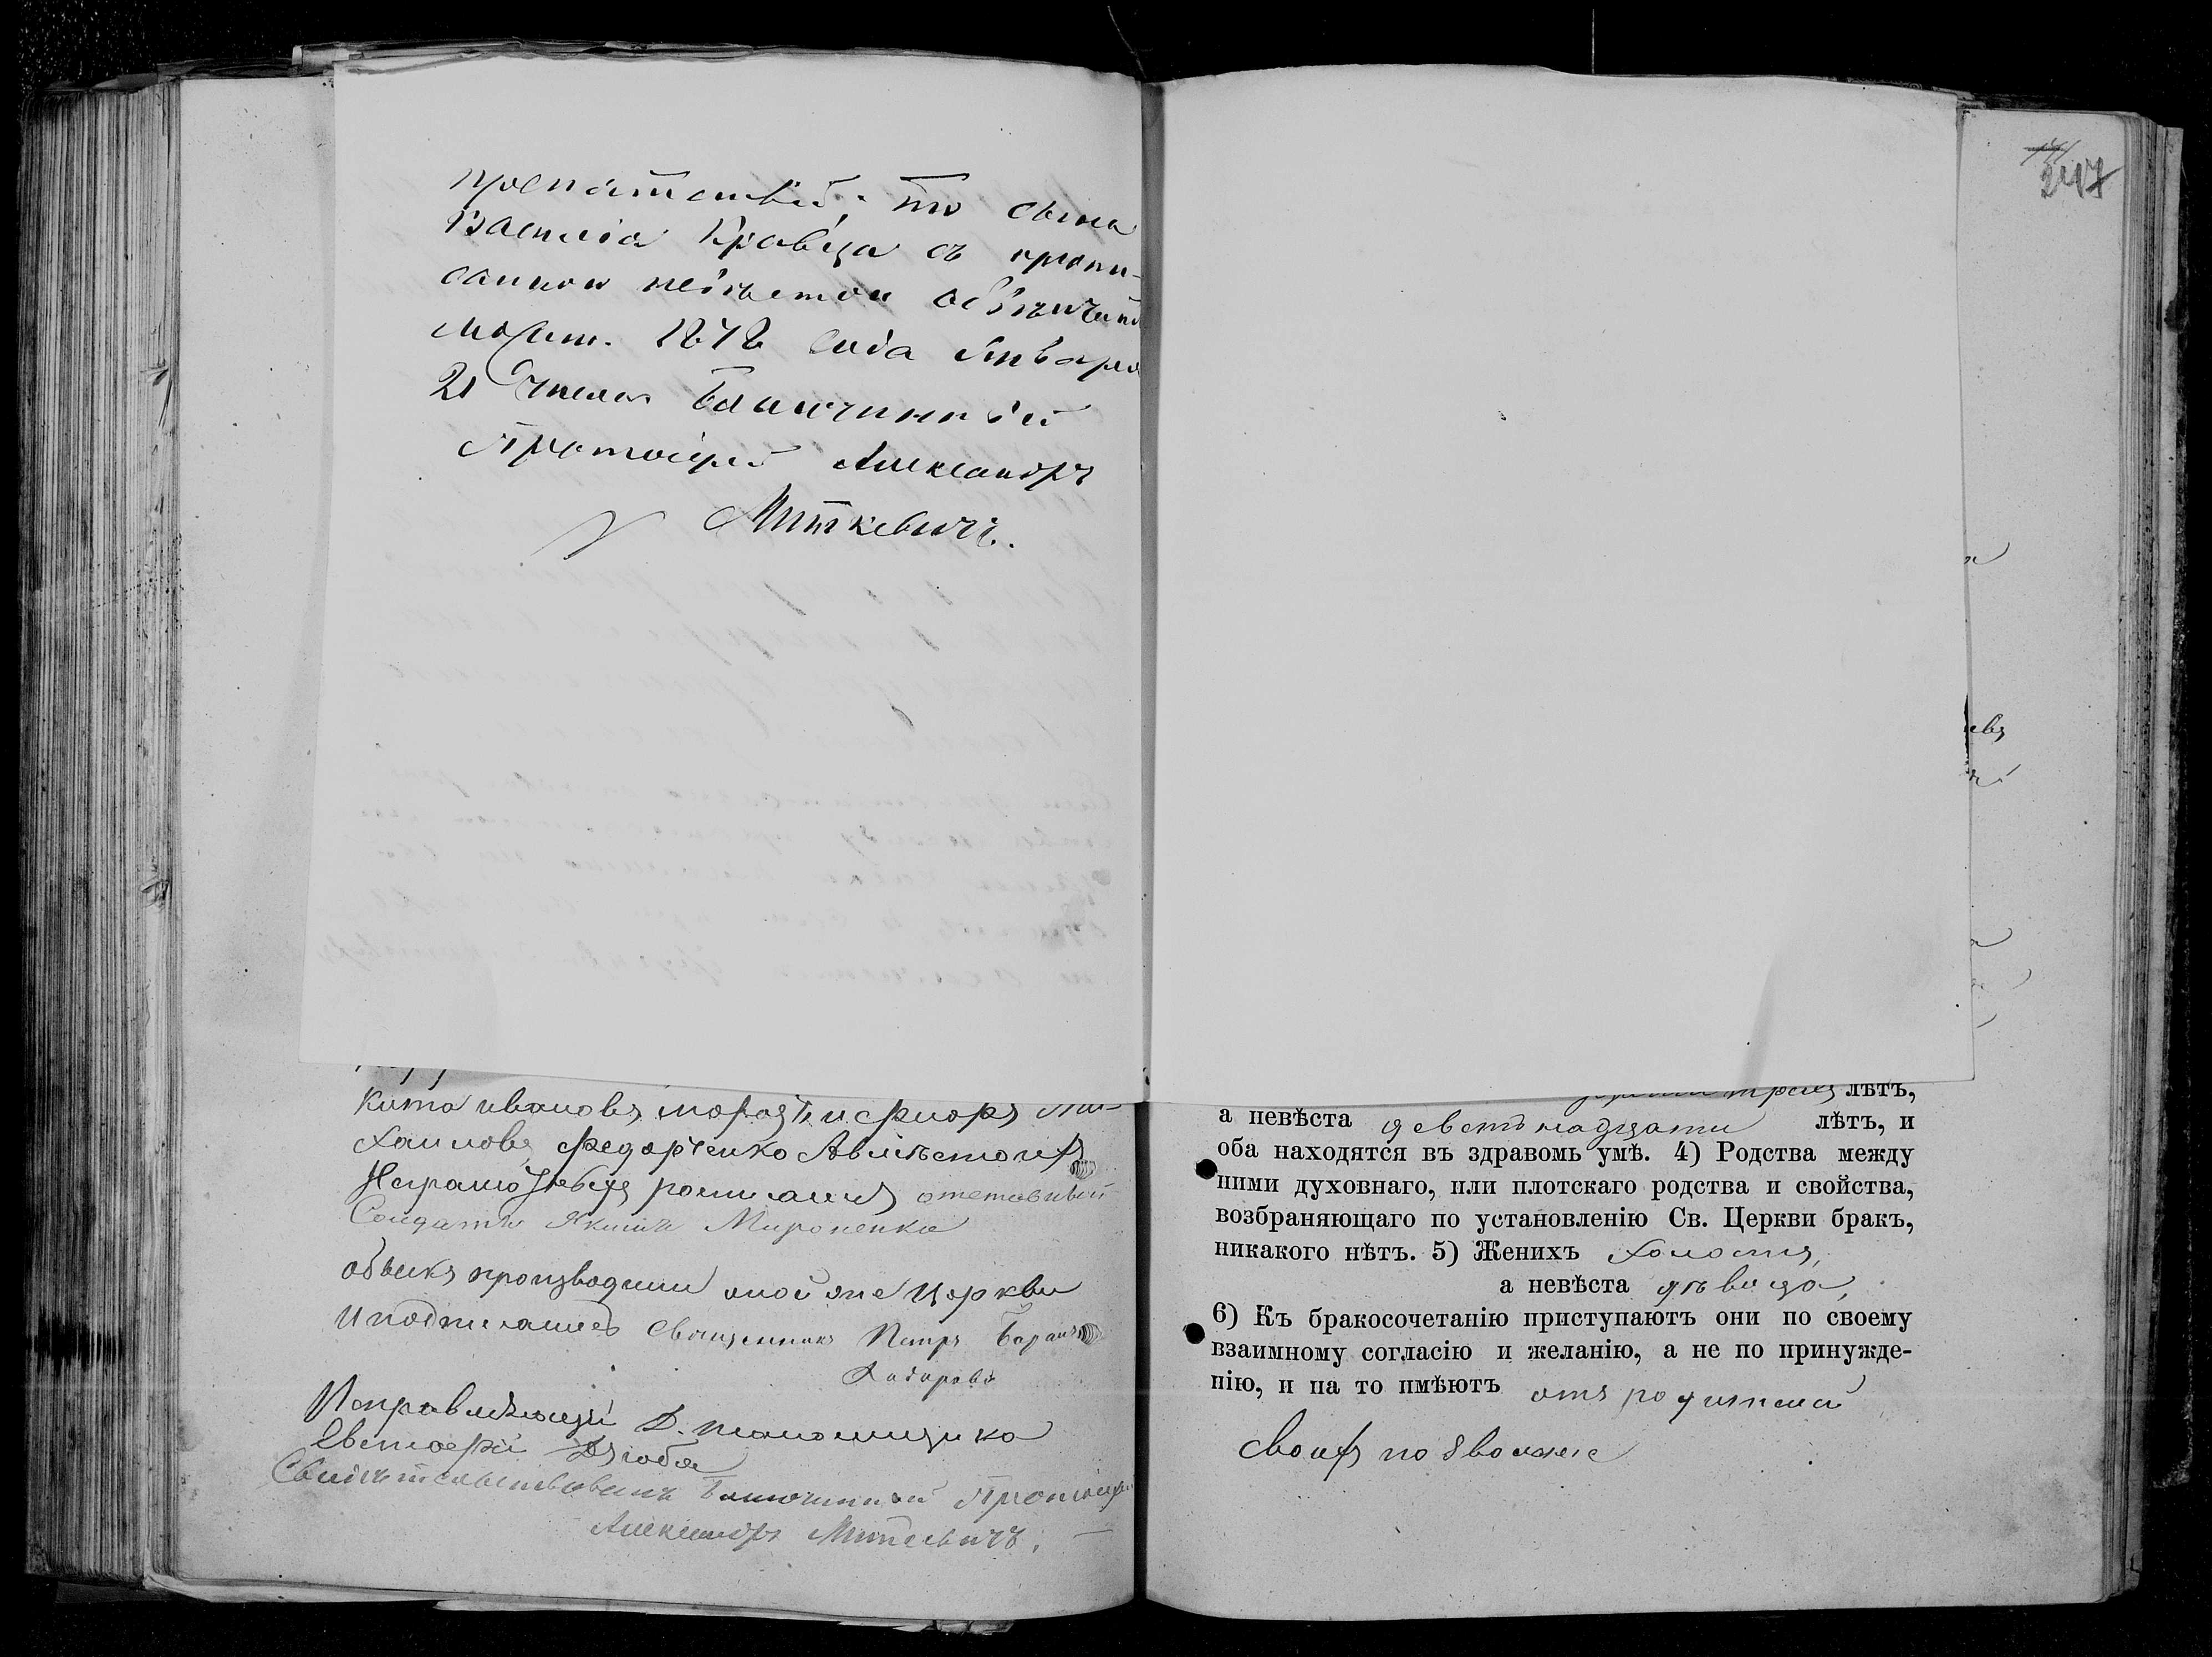 препятствій, то сына
Василія Кравца съ пропи-
санною невѣстою обвѣнчать
можете. 1878 года Января
21 числа Благочинный
Протоіерей Александръ
Миткевичъ.
кита ивановъ морозъ и
хаиловъ федорченко Авмѣсто ихъ
Неграмотныхъ росписался отставный
Солдатъ Якимъ Мироненко
обыскъ производили той же церкви
и подписались Священникъ Петръ
Исправляющій Д. пономщика
Дзюба
Свидѣтельствовалъ Благочинный Протоіерей
Александръ Миткевичъ.
247
лѣтъ,
а невѣста деветьнадцати лѣтъ, и
оба находятся въ здравомь умѣ. 4) Родства между
ними духовнаго, или плотскаго родства и свойства,
возбраняющаго по установленію Св. Церкви бракъ,
никакого нѣтъ. 5) Женихъ холостъ,
а невѣста дѣвица,
6) Къ бракосочетанію приступаютъ они по своему
взаимному согласію и желанію, а не по принужде-
нію, и на то имѣютъ отъ родителей
своихъ